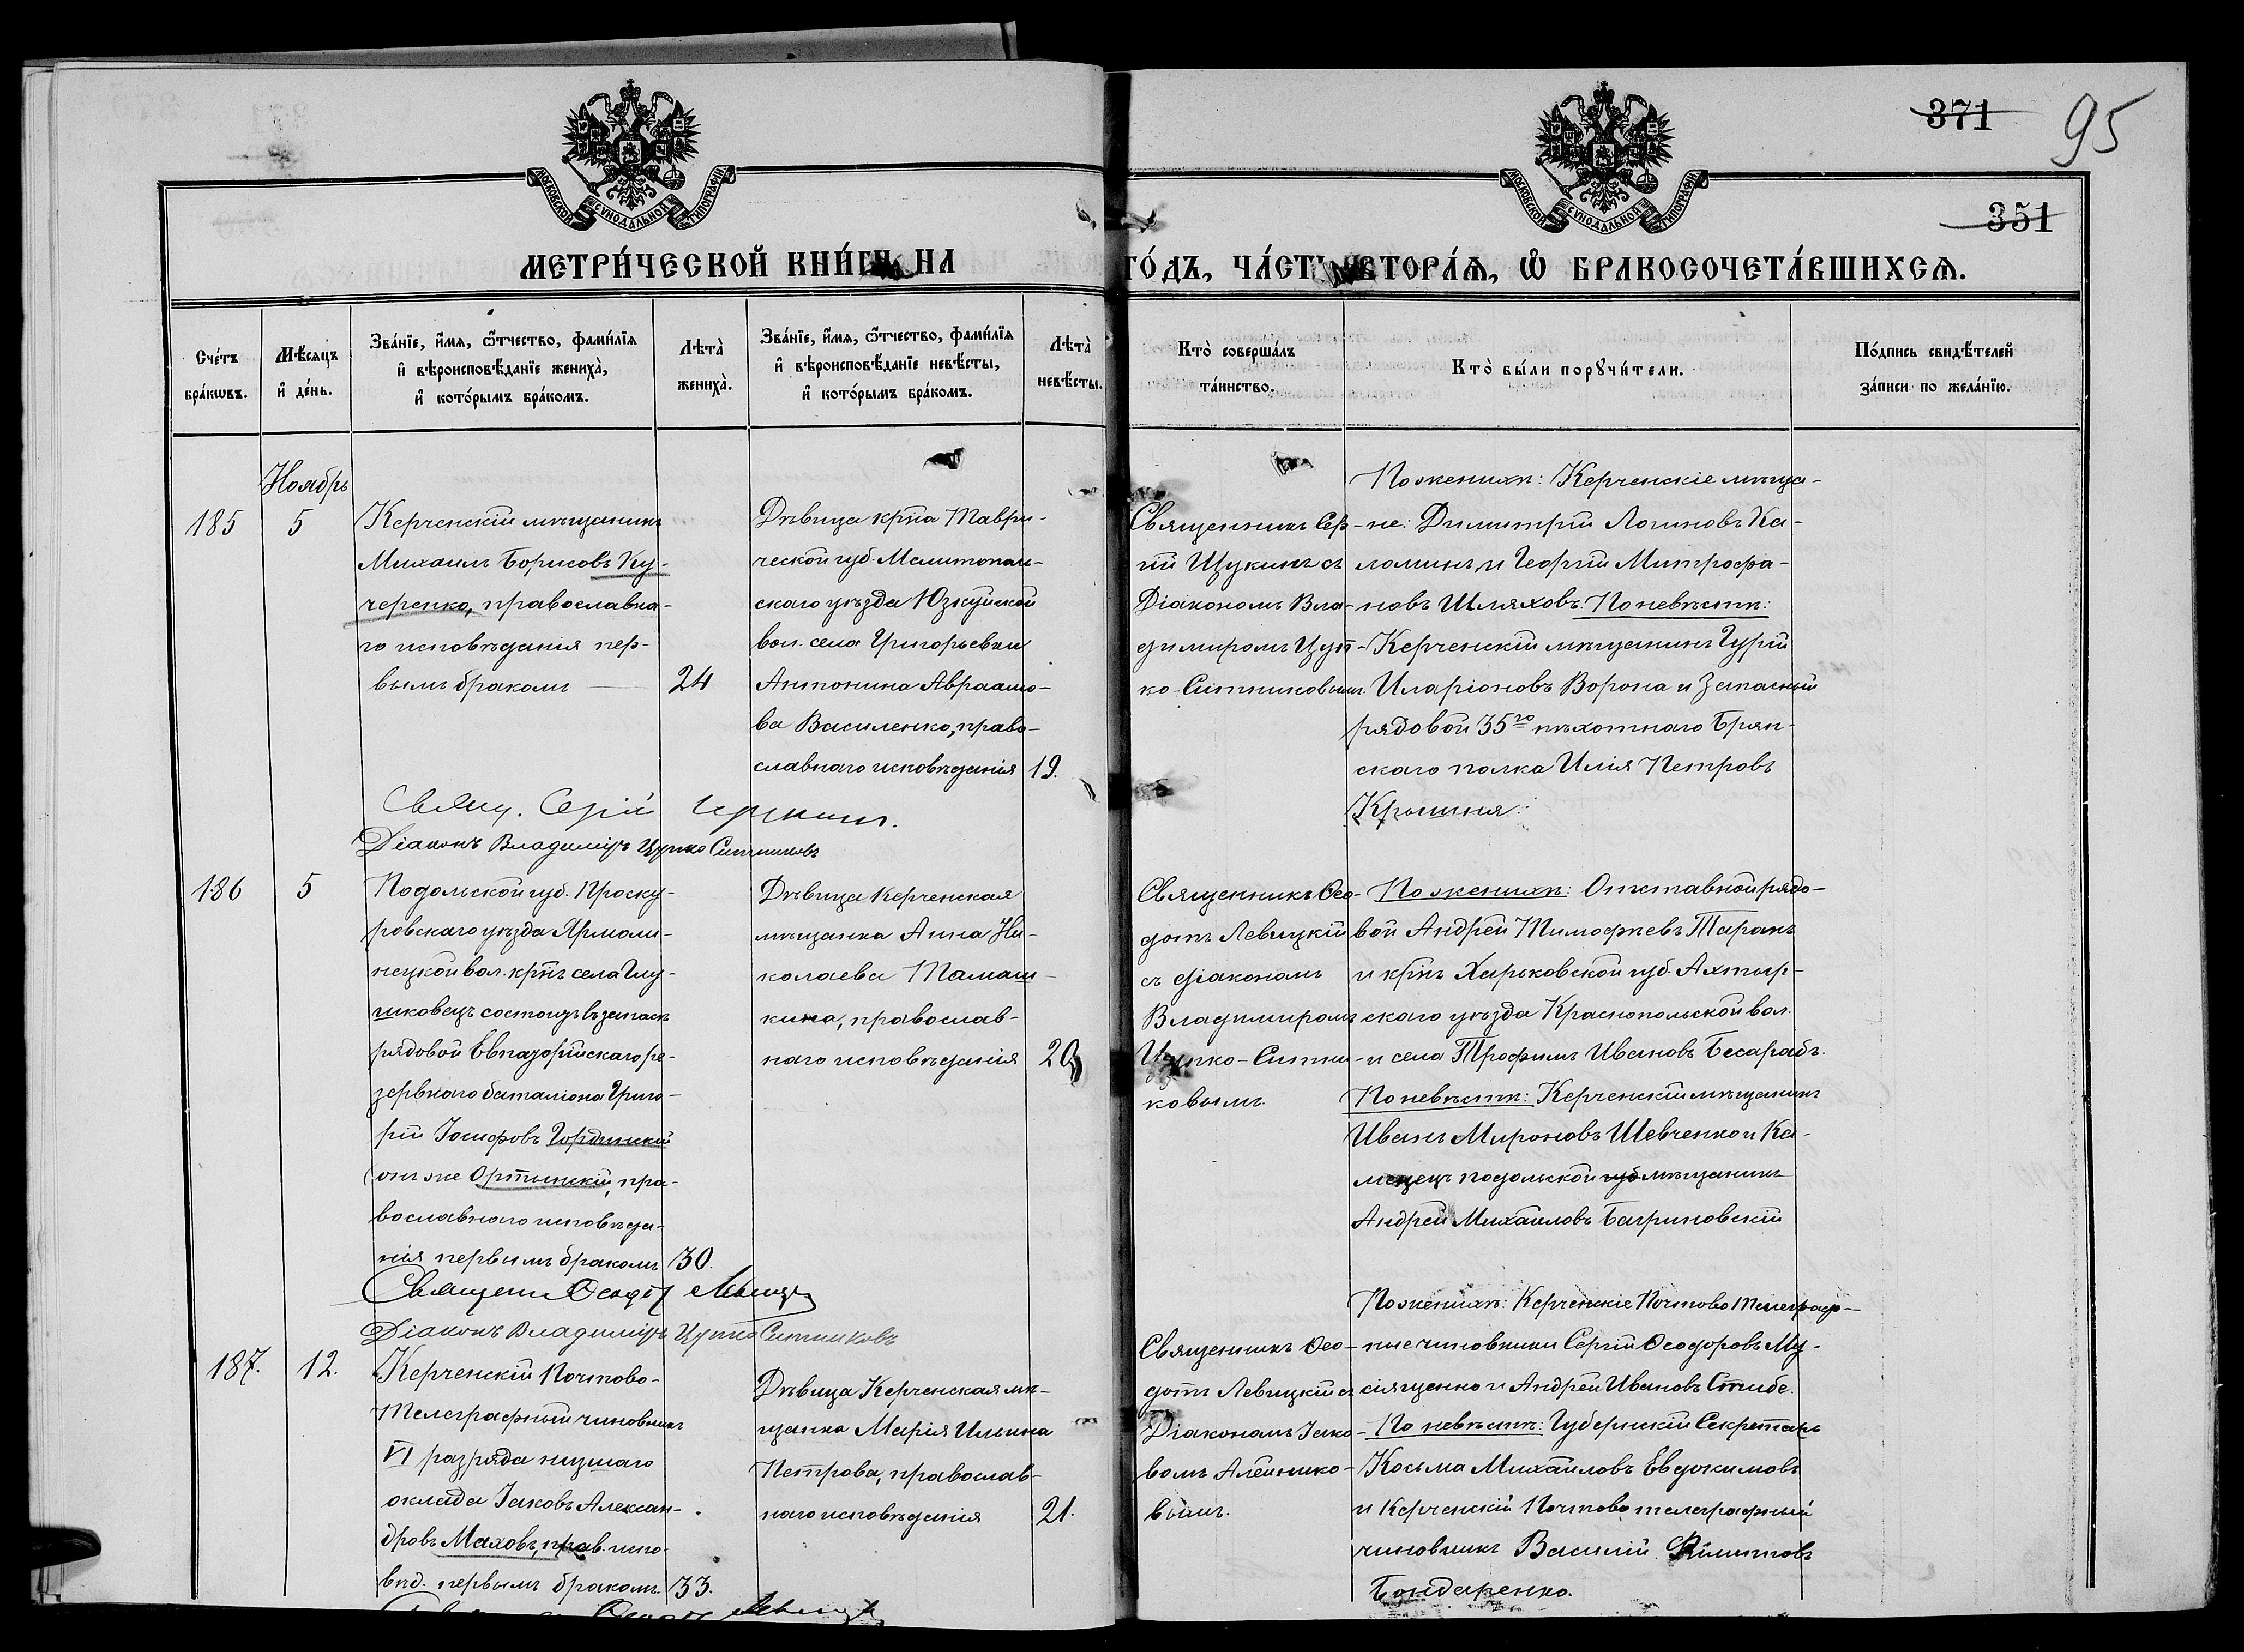 МОСКОВСКОЙ СѴНОДАЛЬНОЙ ТИПОГРАФІИ
МОСКОВСКОЙ СѴНОДАЛЬНОЙ ТИПОГРАФІИ
371
95
351
МЕТРИ́ЧЕСКОЙ КНИ́ГИ НА
ГО́ДЪ, ЧА́СТЬ ВТОРА́Ѧ, Ѽ БРАКОСОЧЕТА́ВШИХСѦ.
Сче́тъ
бра́кѡвъ.
Мѣ́сяцъ
и҆ де́нь.
Зва́нїе, и҆́мѧ, ѻ҆́тчество, фами́лїѧ
и҆ вѣроисповѣ́данїе жениха̀,
и҆ кото́рымъ бра́комъ.
Лѣта̀
жениха̀.
Зва́нїе, и҆́мѧ, ѻ҆́тчество, фами́лїѧ
и҆ вѣроисповѣ́данїе невѣ́сты,
и҆ кото́рымъ бра́комъ.
Лѣта̀
невѣ́сты.
Кто̀ соверша́лъ
та́инство.
Кто̀ бы́ли порꙋчи́тели.
По́дпись свидѣ́телей
за́писи по жела́нїю.
Ноябрь
185
5
Керченскій мѣщанинъ
Михаилъ Борисовъ Ку-
черенко, православна-
го исповѣданія пер-
вымъ бракомъ
24
Дѣвица кр-на Таври-
ческой губ. Мелитополь-
скаго уѣзда Юзкуйской
вол. села Григорьевки
Антонина Авраамо-
ва Василенко, право-
славнаго исповѣданія
19.
Священникъ Сер-
гій Щукинъ съ
Діакономъ Вла-
димиромъ Цуп-
ко-Ситниковымъ.
По женихѣ: Керченскіе мѣща-
не: Димитрій Логиновъ Ка-
ломинъ и Георгій Митрофа-
новъ Шляховъ. По невѣстѣ:
Керченскій мѣщанинъ Гурій
Иларіоновъ Ворона и Запасный
рядовой 35го пѣхотнаго Брян-
скаго полка Илія Петровъ
Свящ. Сергій Щукинъ.
Діаконъ Владиміръ Цупко Ситниковъ
186
5
Подольской губ. Проску-
ровскаго уѣзда Ярмоли-
нецкой вол. кр-нъ села Глу-
шковецъ состоящ. въ запасѣ
рядовой Евпаторійскаго ре-
зервнаго баталіона Григо-
рій Іосифовъ Гордынскій
(онъ же Ортынскій, пра-
вославнаго исповѣда-
нія первымъ бракомъ
30.
Дѣвица Керченская
мѣщанка Анна Ни-
колаева Тамаш-
кина, православ-
наго исповѣданія
Священникъ Ѳео-
дотъ Левицкій
съ діакономъ
Владимиромъ
Цупко-Ситни-
ковымъ.
По женихѣ: Отставной рядо-
вой Андрей Тимофеевъ Таранъ
и кр-нъ Харьковской губ. Ахтыр-
скаго уѣзда Краснопольской вол.
и села Трофимъ Ивановъ Бесарабъ.
По невѣстѣ: Керченскій мѣщанинъ
Иванъ Мироновъ Шевченко и Ка-
менецъ подольской губ мѣщанинъ
Андрей Михаиловъ Багриновскій
Священ. Ѳеодотъ Левицкій
Діаконъ Владиміръ Цупко Ситниковъ
187.
12.
Керченскій Почтово-
Телеграфный чиновникъ
VI разряда низшаго
оклада Іаковъ Алексан-
дровъ Маховъ, прав. испо-
вѣд. первымъ бракомъ.
33.
Дѣвица Керченская мѣ-
щанка Марія Ильина
Петрова, православ-
наго исповѣданія
21.
Священникъ Ѳео-
дотъ Левицкій съ
Діакономъ Іако-
вомъ Алейнико-
вымъ.
По женихѣ: Керченскіе Почтово Телеграф-
ные чиновники Сергій Ѳеодоровъ Му-
сіященко и Андрей Ивановъ Стибе.
По невѣстѣ: Губернскій Секретарь
Косьма Михаиловъ Евдокимовъ
и Керченскій Почтово телеграфный
чиновникъ Василій Филиповъ
Бондаренко.